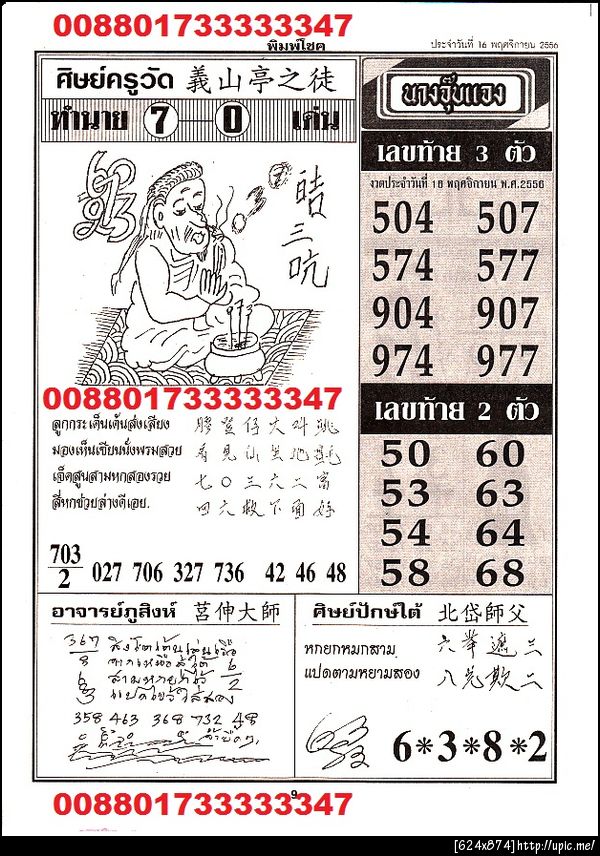 008801733333347
พิมพ์โชค
ประจำวันที่ 16 พฤศจิกายน 2556
ศิษย์ครูวัด 義山亭之徒
ทำนาย 7-0 เด่น
皓
三
吭
008801733333347
ลูกกระเด็นเต้นส่งเสียง
มองเห็นเซียนนั่งพรมสวย
เจ็ดสูนสามหกสองรวย
สี่หกช่วยล่างดีเอย.
看見仙
七〇三六二富
四六救下面好
703
2
027 706 327 736 42 46 48
นางจุ๊บแจง
เลขท้าย 3 ตัว
งวดประจำวันที่ 16 พฤศจิกายน พ.ศ.2556
504 507
574 577
904 907
974 977
เลขท้าย 2 ตัว
50 60
53 63
54 64
58 68
อาจารย์ภูสิงห์ 莒伸大師
367
8
6
2
358 463 368 732 48
ศิษย์ปักษ์ใต้ 北岱師父
หกยกหมกสาม
แปดตามหยามสอง
六举遮三
八兄欺二
6*3*8*2
9
008801733333347
[624x874]http://upic.me/